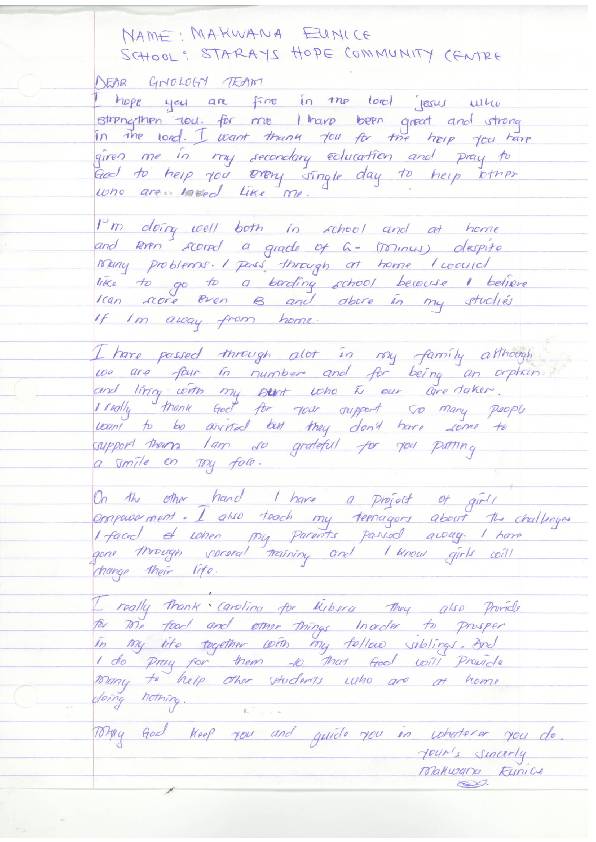 NAME: MAKWANA EUNICE
SCHOOL: STARAYS HOPE COMMUNITY CENTRE
DEAR GNOLOGY TEAM
I hope you are fine in the lord jesus who
strengthen you. for me I have been great and strong
in the lord. I want thank you for the help you have
given me in my secondary education and pray to
God to help you every single day to help other
who are like me.
I'm doing well both in school and at home
and even scored a grade of C- (Minus) despite
many problems. I pass through at home I would
like to go to a boarding school because I believe
I can score even B and above in my studies
If I'm away from home.
I have passed through alot in my family although
we are four in number and for being an orphan
and living with my aunt who is our care taker.
I really thank God for your support so many people
want to be assisted but they don't have some to
support them I am so grateful for you putting
a smile on my face.
On the other hand I have a project of girl
empowerment. I also teach my teenagers about the challenges
I faced when my parents passed away. I have
gone through several training and I know girls will
change their life.
I really thank Carolina for Kibera They also provide
for me food and other things inorder to prosper
in my life together with my fellow siblings. And
I do pray for them so that God will provide
many to help other students who are at home
doing nothing.
May God keep you and guide you in whatever you do.
Your's sincerly
Makwana Eunice